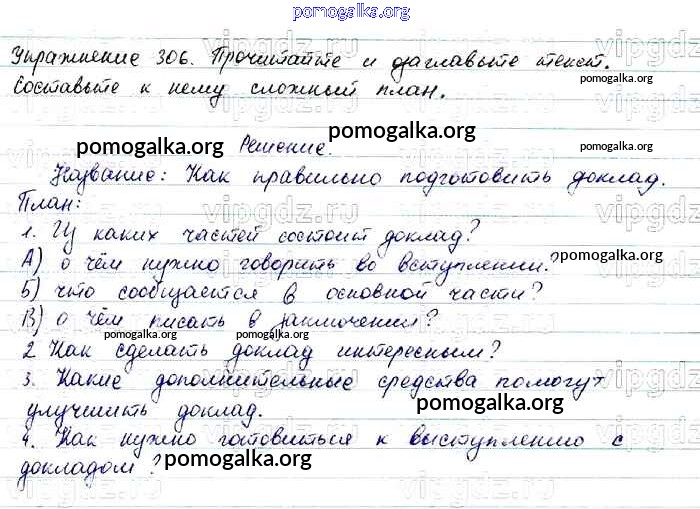 pomogalka.org
Упражнение 306. Прочитайте и озаглавьте текст.
Составьте к нему сложный план.
pomogalka.org
pomogalka.org
pomogalka.org
Решение.
Название: Как правильно подготовить доклад.
План:
1. Из каких частей состоит доклад?
А) о чём нужно говорить во вступлении?
pomogalka.org
Б) что сообщается в основной части?
В) о чём писать в заключении?
pomogalka.org
pomogalka.org
2 Как сделать доклад интересным?
3. Какие дополнительные средства помогут
улучшить доклад.
pomogalka.org
4. Как нужно готовиться к выступлению с
докладом?
pomogalka.org
vipgdz.ru